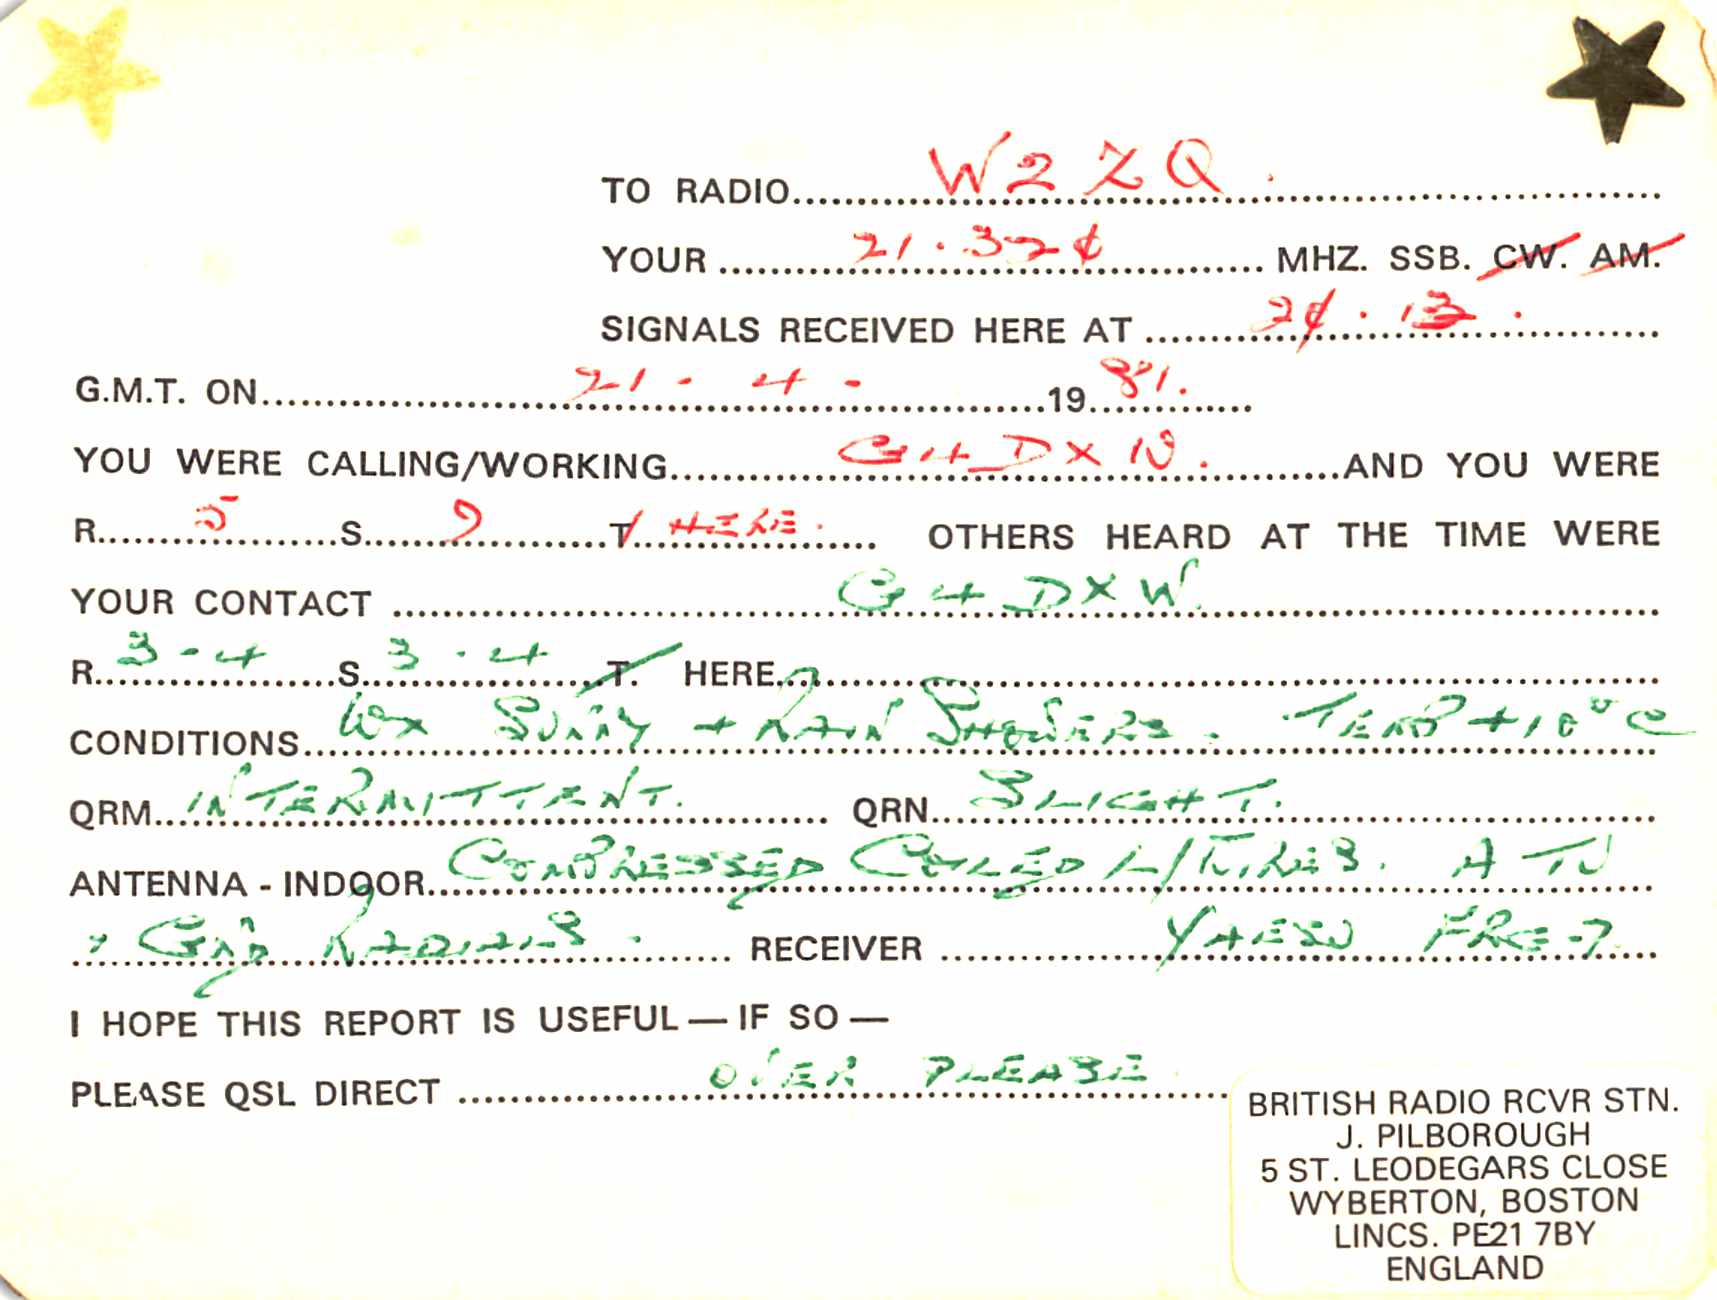 TO RADIO W2ZQ.
YOUR 21.320 MHZ. SSB. CW. AM.
SIGNALS RECEIVED HERE AT 20.13.
G.M.T. ON 21-4-1981.
YOU WERE CALLING/WORKING G4DXW. AND YOU WERE
R 5 S 9 T HERE. OTHERS HEARD AT THE TIME WERE
YOUR CONTACT G4DXW.
R 3-4 S 3-4 T. HERE
CONDITIONS WX SUNNY + RAIN SHOWERS. TEMP +10°C
QRM INTERMITTENT. QRN SLIGHT.
ANTENNA - INDOOR COMPRESSED COILED L/WIRES. ATU
GND RADIALS. RECEIVER YAESU FRG-7.
I HOPE THIS REPORT IS USEFUL — IF SO —
PLEASE QSL DIRECT OVER PLEASE
BRITISH RADIO RCVR STN.
J. PILBOROUGH
5 ST. LEODEGARS CLOSE
WYBERTON, BOSTON
LINCS. PE21 7BY
ENGLAND